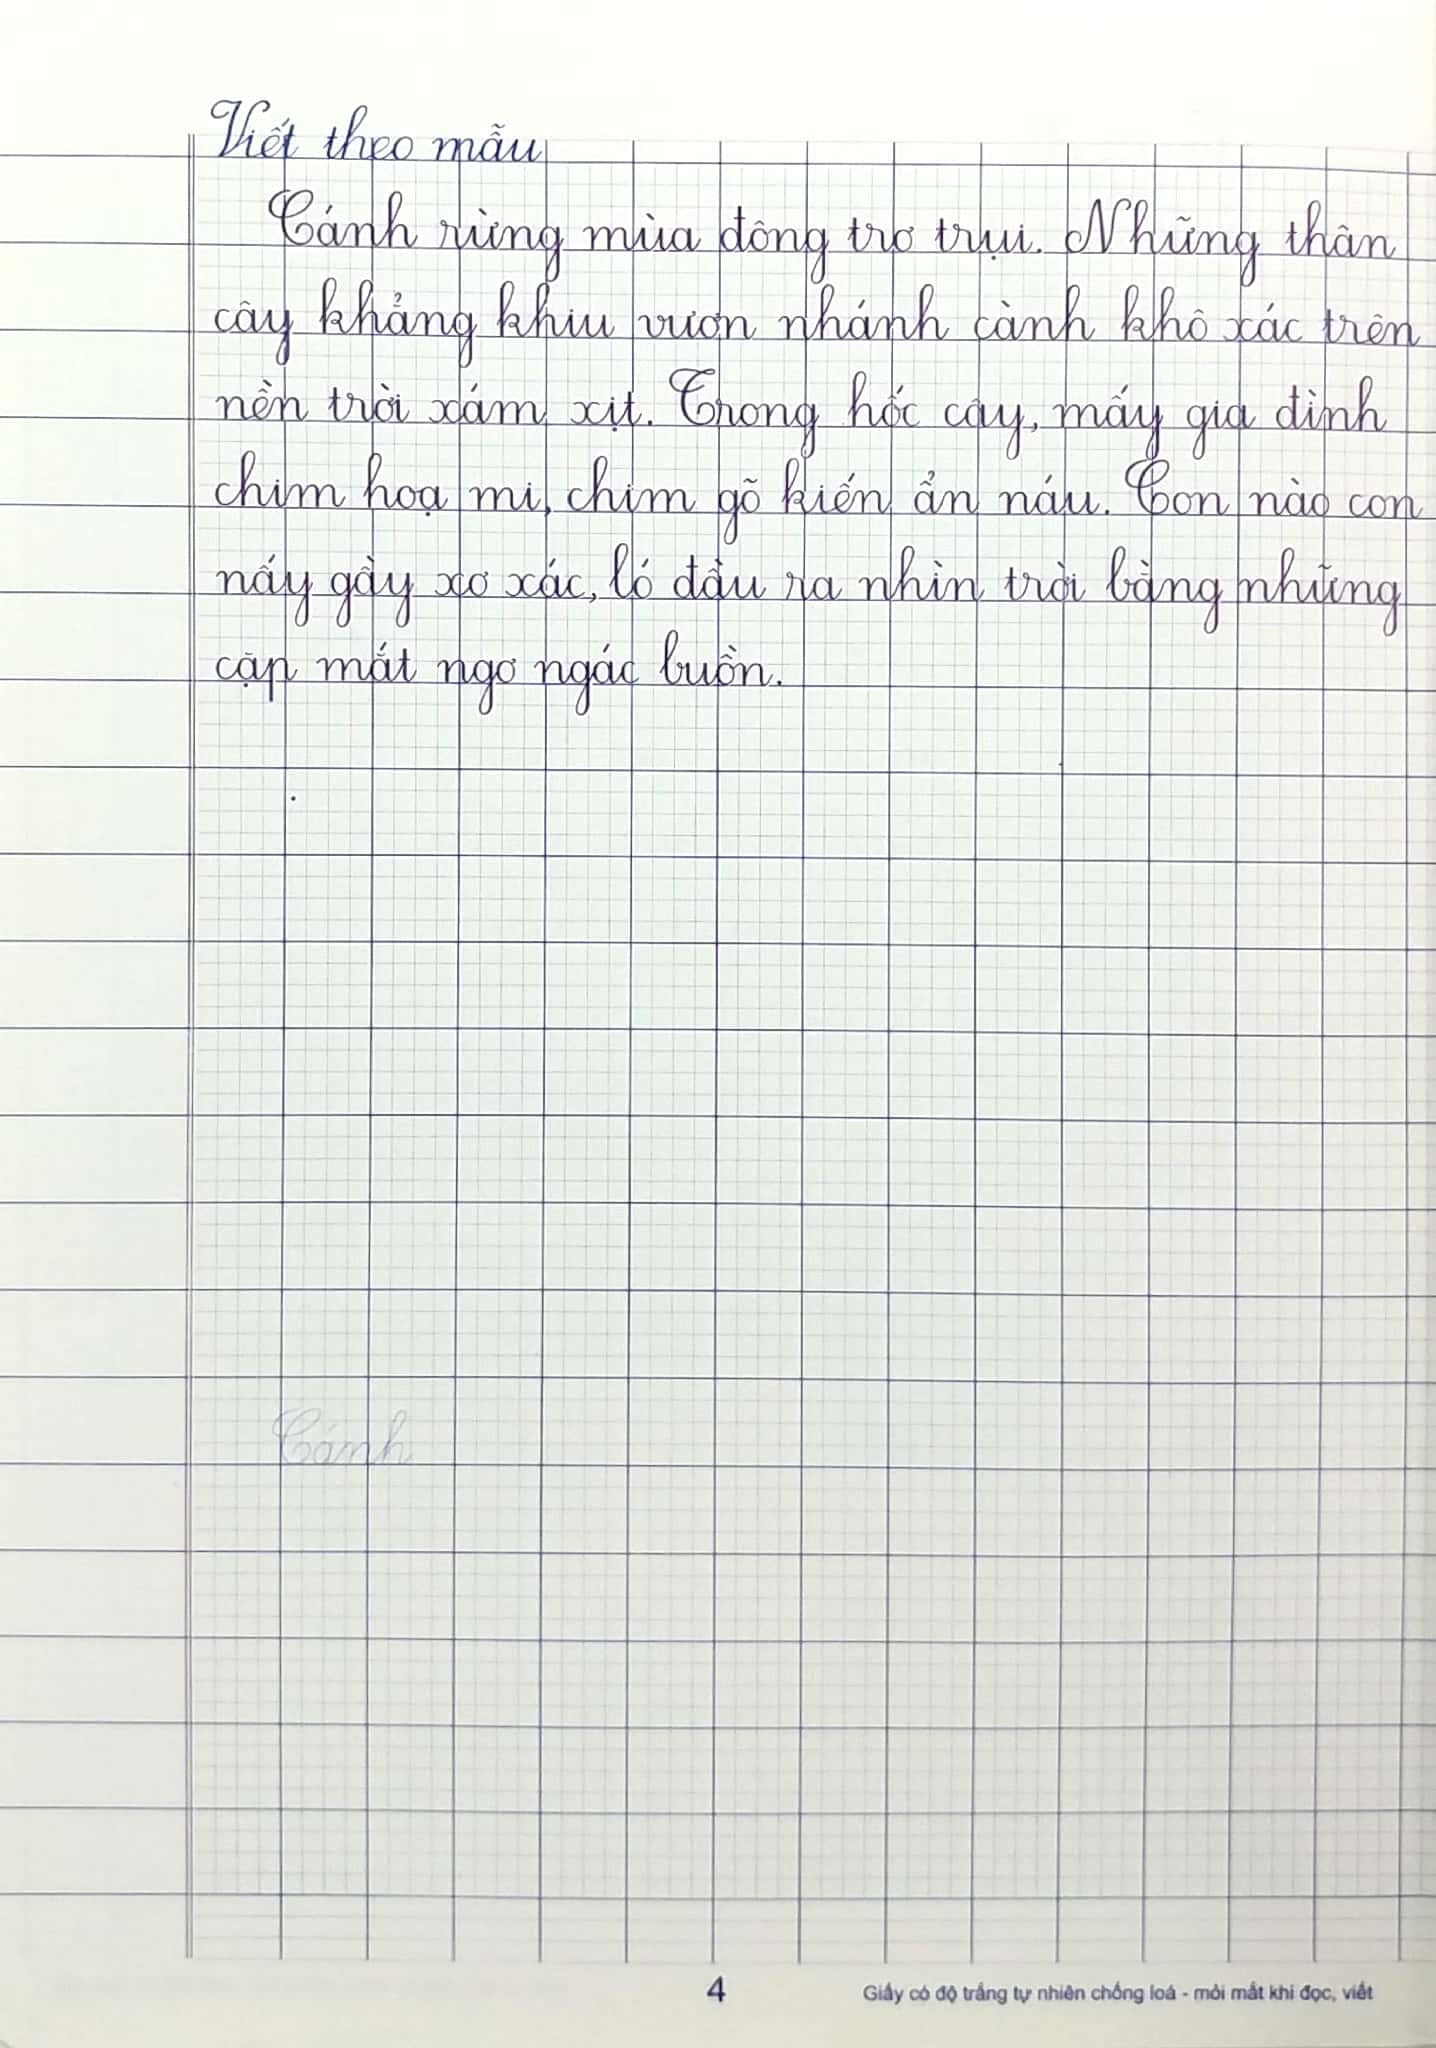 Viết theo mẫu
Cánh rừng mùa đông trơ trụi. Những thân
cây khẳng khiu vươn nhánh cành khô xác trên
nền trời xám xịt. Trong hốc cây, mấy gia đình
chim hoạ mi, chim gõ kiến ẩn náu. Con nào con
nấy gầy xơ xác, ló đầu ra nhìn trời bằng những
cặp mắt ngơ ngác buồn.
Cánh
4 Giấy có độ trắng tự nhiên chống loá - mỏi mắt khi đọc, viết